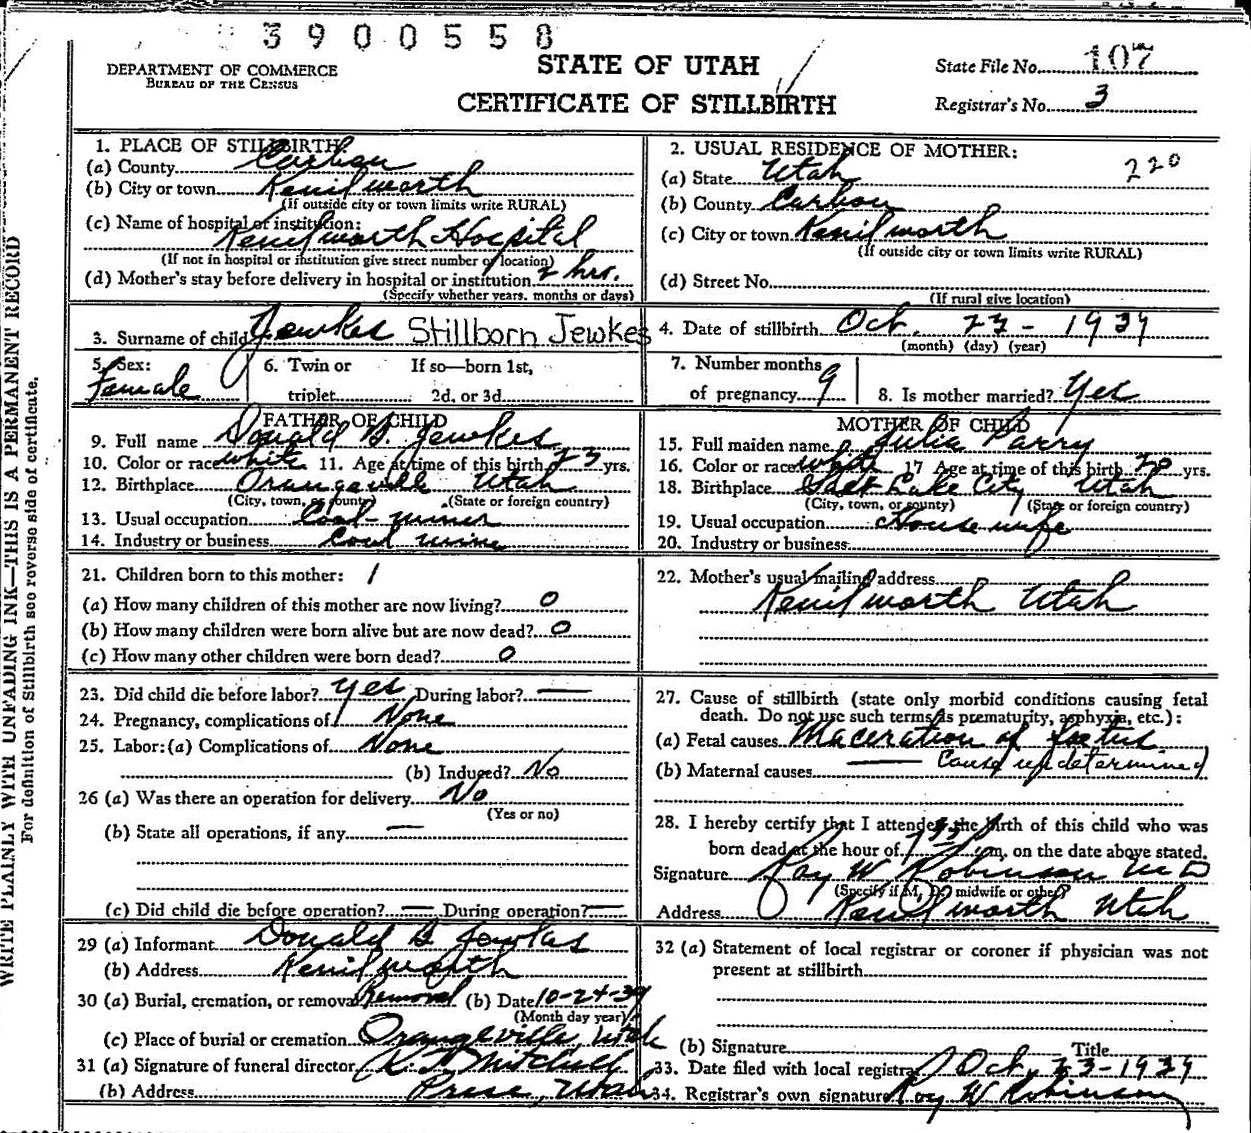 3900558
DEPARTMENT OF COMMERCE
BUREAU OF THE CENSUS
STATE OF UTAH
CERTIFICATE OF STILLBIRTH
State File No. 107
Registrar's No. 3
WRITE PLAINLY WITH UNFADING INK—THIS IS A PERMANENT RECORD
For definition of Stillbirth see reverse side of certificate.
1. PLACE OF STILLBIRTH:
(a) County Carbon
(b) City or town Kenilworth
(If outside city or town limits write RURAL)
(c) Name of hospital or institution:
Kenilworth Hospital
(If not in hospital or institution give street number or location)
(d) Mother's stay before delivery in hospital or institution 2 hrs.
(Specify whether years, months or days)
2. USUAL RESIDENCE OF MOTHER:
220
(a) State Utah
(b) County Carbon
(c) City or town Kenilworth
(If outside city or town limits write RURAL)
(d) Street No.
(If rural give location)
3. Surname of child Jewkes Stillborn Jewkes
4. Date of stillbirth Oct. 23 - 1939
(month) (day) (year)
5. Sex: Female
6. Twin or triplet If so—born 1st, 2d, or 3d
7. Number months of pregnancy 9
8. Is mother married? Yes
FATHER OF CHILD
9. Full name Donald B. Jewkes
10. Color or race white 11. Age at time of this birth 23 yrs.
12. Birthplace Orangeville Utah
(City, town, or county) (State or foreign country)
13. Usual occupation Coal-miner
14. Industry or business Coal mine
MOTHER OF CHILD
15. Full maiden name Julia Parry
16. Color or race white 17 Age at time of this birth 20 yrs.
18. Birthplace Salt Lake City Utah
(City, town, or county) (State or foreign country)
19. Usual occupation House wife
20. Industry or business
21. Children born to this mother: 1
(a) How many children of this mother are now living? 0
(b) How many children were born alive but are now dead? 0
(c) How many other children were born dead? 0
22. Mother's usual mailing address
Kenilworth Utah
23. Did child die before labor? yes During labor? —
24. Pregnancy, complications of None
25. Labor: (a) Complications of None
(b) Induced? No
26 (a) Was there an operation for delivery No
(Yes or no)
(b) State all operations, if any —
(c) Did child die before operation? — During operation? —
27. Cause of stillbirth (state only morbid conditions causing fetal
death. Do not use such terms as prematurity, asphyxia, etc.):
(a) Fetal causes Maceration of foetus.
(b) Maternal causes — Cause undetermined
28. I hereby certify that I attended the birth of this child who was
born dead at the hour of m, on the date above stated.
Signature Roy W Robinson MD
(Specify if M. D., midwife or other)
Address Kenilworth Utah
29 (a) Informant Donald B Jewkes
(b) Address Kenilworth
30 (a) Burial, cremation, or removal Removal (b) Date 10-24-39
(Month day year)
(c) Place of burial or cremation Orangeville, Utah
31 (a) Signature of funeral director Mitchell
(b) Address Price, Utah
32 (a) Statement of local registrar or coroner if physician was not
present at stillbirth
(b) Signature Title
33. Date filed with local registrar Oct. 23-1939
34. Registrar's own signature Roy W Robinson